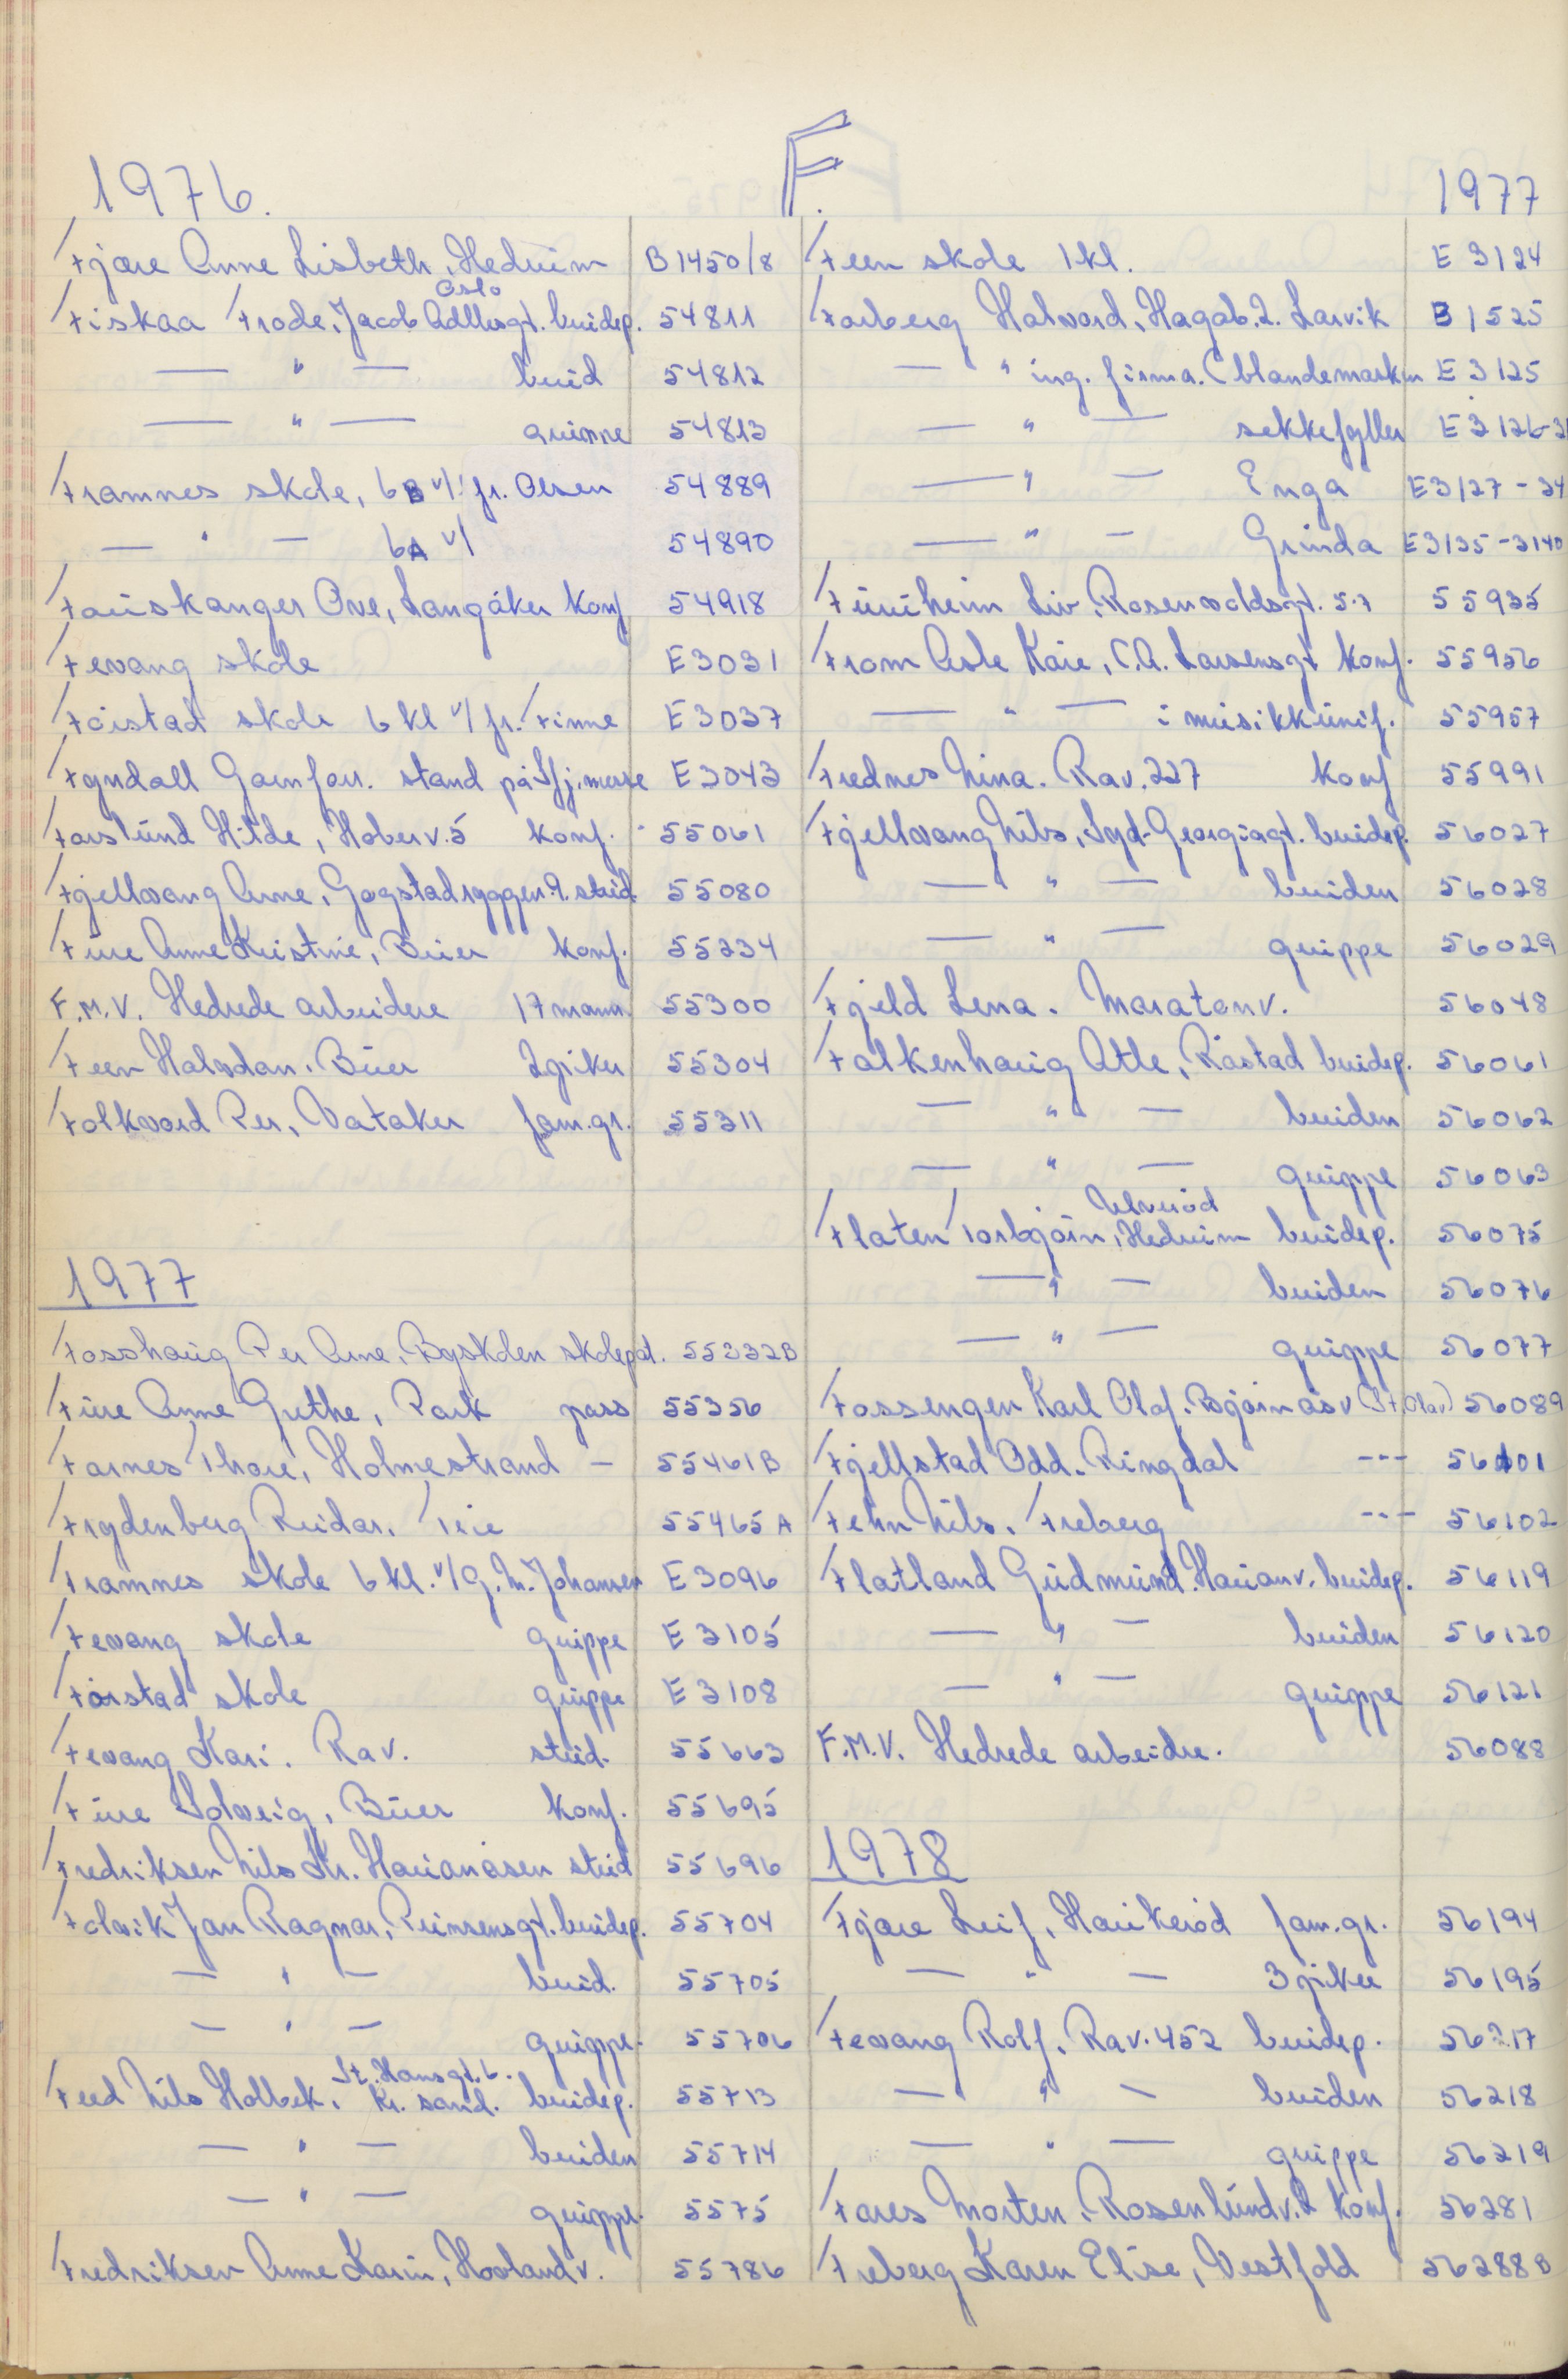 F.
1976.
Fjære Anne Lisbeth, Hedrum B1450/8
Oslo
Fiskaa Frode, Jacob Adllersgt. brudep. 54811
— " — brud 54812
— " — 54813
Framnes skole, 6B v/ fr. Olsen 54889
— " — 6A v/ 54890
Fauskanger Ove, Langåker konf 54918
Fevang skole E3031
Fårstad skole 6 kl v/ fr. Finne E3037
Fyndall Garnforr. stand på Sfj.messe E3043
Forslund Hilde, Hoberv.5 konf. 55061
Fjellvang Arne, Gogstadryggen 9. stud 55080
Fure Anne Kristine, Buer konf. 55234
F.M.V. Hedrede arbeidere 17 mann 55300
Feen Halvdan. Buer 2 piker 55304
Folkvord Per, Vataker fam.gr. 55311
1977
Fosshaug Per Arne, Byskolen skolepat. 55332B
Fure Anne Grethe, Park pass 55356
Farnes Thore, Holmestrand — 55461B
Frydenberg Reidar. Teie 55465 A
Framnes skole 6 kl. v/G.M. Johansen E3096
Fevang skole gruppe E3105
Fårstad skole gruppe E3108
Fevang Kari. Rav. stud. 55663
Fure Solveig, Buer konf. 55695
Fredriksen Nils Kr. Hauanåsen stud 55696
Folvik Jan Ragnar, Prinsensgt. brudep. 55704
— " — brud. 55705
— " — gruppe. 55706
St. Hansgt. 6.
Feed Nils Holbek, Kr. sand. brudep. 55713
— " — bruden 55714
— " — gruppe. 5575
Fredriksen Anne Karin, Hovlandv. 55786
1977
Feen skole 1 kl. E 3124
Forberg Halvard, Hagab. 2. Larvik B1525
— " ing. firma. (blandemaskin E 3125
— " — sekkefyller E 3126-31
— " — Enga E3127-34
— " — Grinda E3135-3140
Furuheim Liv. Rosenvoldsgt. 57 55935
From Asle Kåre, C.A. Larsensgt konf. 55956
— " — i musikkunif. 55957
Frednes Nina. Rav. 227 konf 55991
Fjellvang Nils, Syd-Georgiagt. brudep. 56027
— " — bruden 56028
— " — gruppe 56029
Fjeld Lena. Maratonv. 56048
Falkenhaug Atle, Råstad brudep. 56061
— " — bruden 56062
— " — gruppe 56063
Ulverød
Flaten Torbjørn, Hedrum brudep. 56075
— " — bruden 56076
— " — gruppe 56077
Fossengen Karl Olaf. Bjørnåsv (St. Olav) 56089
Fjellstad Odd. Ringdal --- 56101
Fehn Nils. Freberg --- 56102
Flatland Gudmund. Hauanv. brudep. 56119
— " — bruden 56120
— " — gruppe 56121
F.M.V. Hedrede arbeidre. 56088
1978
Fjære Leif, Haukerød fam.gr. 56194
— " — 3 piker 56195
Fevang Rolf, Rav. 452 brudep. 56217
— " — bruden 56218
— " — gruppe 56219
Fares Morten. Rosenlundv. 2 konf. 56281
Freberg Karen Elise, Vestfold 56288B